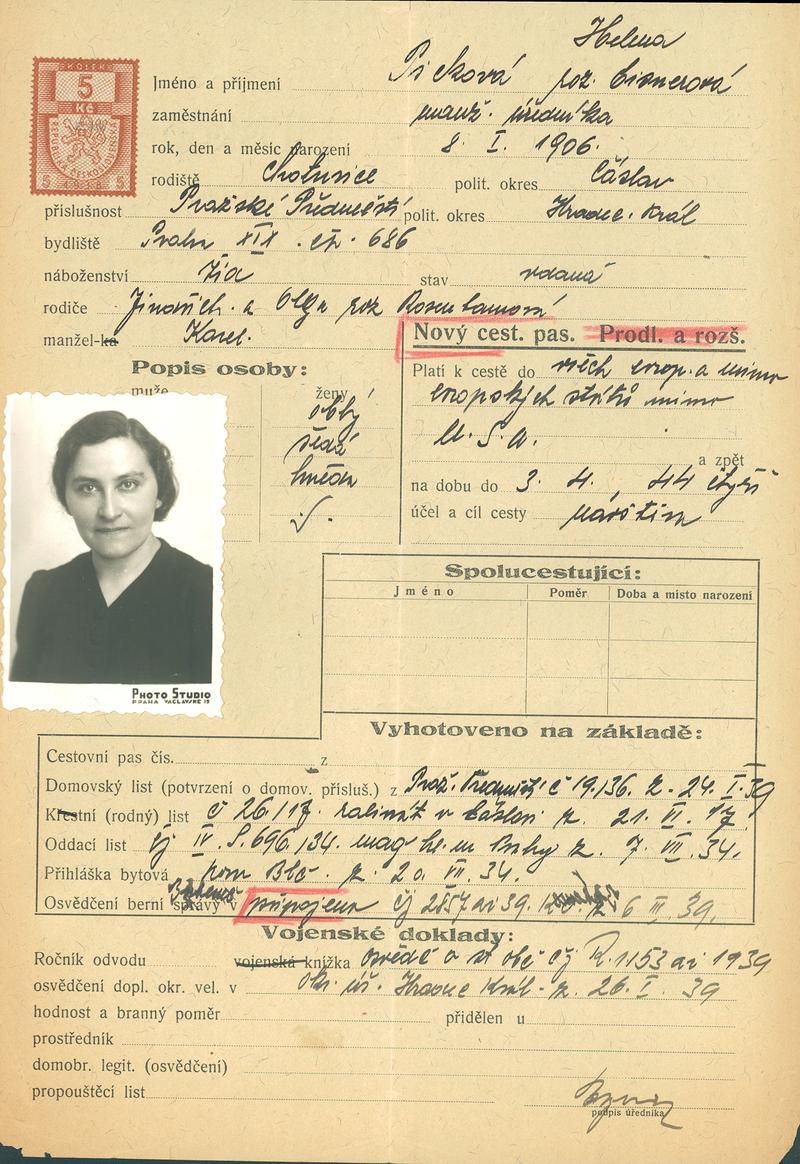 Helena
Jméno a příjmení Picková roz. Eisnerová
KOLEK
5
Kč
zaměstnání manž. úředníka
rok, den a měsíc narození 8. I. 1906.
rodiště Chotusice polit. okres Čáslav
příslušnost Pražské Předměstí polit. okres Hradec. Král
bydliště Praha XIX. čp. 686
náboženství žid stav vdaná
rodiče Jindřich. a Olga roz Rosenbaumová
manžel-ka Karel.
Nový cest. pas. Prodl. a rozš.
Popis osoby:
muže ženy
Platí k cestě do všech evrop. a mimo
evropských států mimo
U. S. A.
a zpět
oblý
šedé
hnědé
na dobu do 3. 4., 44 čtyři
účel a cíl cesty
Spolucestující:
Jméno Poměr Doba a místo narození
PHOTO STUDIO
PRAHA VACLAVSKE 19
Vyhotoveno na základě:
Cestovní pas čís. z
Domovský list (potvrzení o domov. přísluš.) z Praž. Předměstí č 19.136. z. 24. I. 39
Křestní (rodný) list č 26/17. rabinát v Čáslavi z. 21. VI. 17.
Oddací list čj IV. S. 696/34. mag. hl. m Prahy z. 7. VII. 34.
Přihláška bytová z. 20. VII. 34.
Osvědčení berní správy v připojena čj 2857 ai 39. z 6 III. 39.
Vojenské doklady:
Ročník odvodu vojenská knížka osvědč o st obč čj R. 1153 ai 1939
osvědčení dopl. okr. vel. v okr. úř. Hradec Král. z. 26. I. 39
hodnost a branný poměr přidělen u
prostředník
domobr. legit. (osvědčení)
propouštěcí list
podpis úředníka